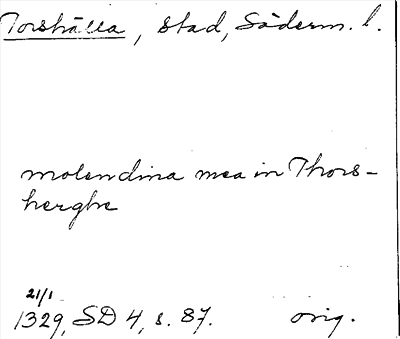 Torshälla, stad, Söderm. l.
molendina mea in Thors-
herghe
21/1
1329, SD 4, s. 87. orig.